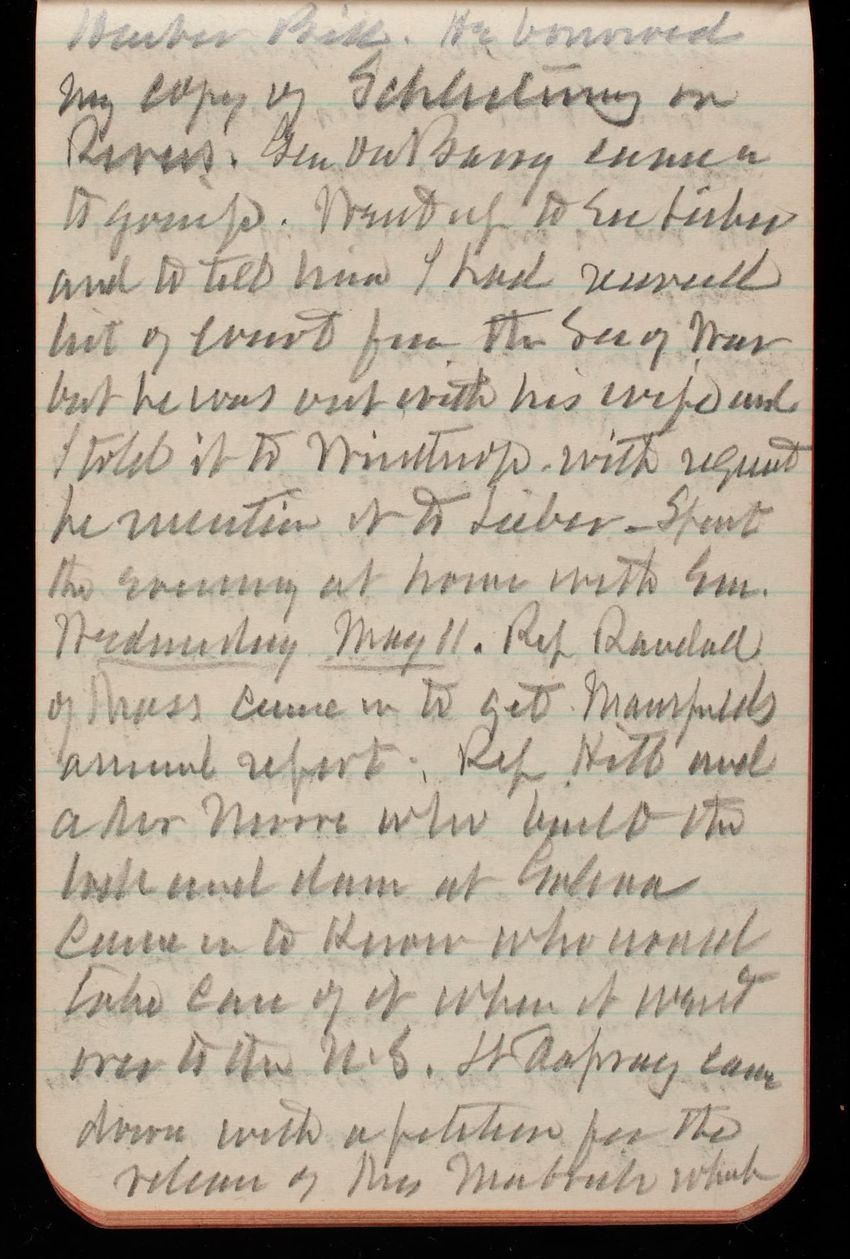 Harbor Bill. He borrowed
my copy of Schlicting on
Rivers. Gen Van Barry came in
to gossip. Went up to see Lieber
and to tell him I had received
list of court from the Sec of War
but he was out with his wife and
I told it to Winthrop with request
he mention it to Lieber - Spent
the evening at home with Em.
Wednesday May 11. Rep Randall
of Mass came in to get Mansfields
annual report. Rep Hitt and
a Mr Moore who built the
lock and dam at Galena
came in to know who would
take care of it when it went
over to the U.S. came
down with a petition for the
release of Mrs Maybrick which